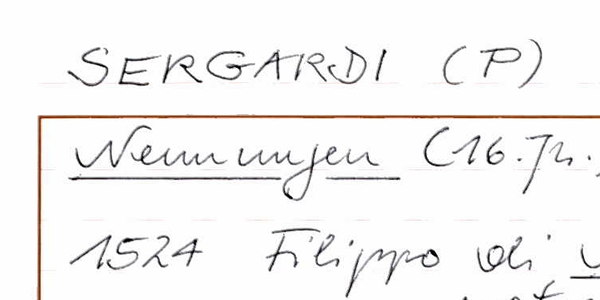 SERGARDI (P)
Nennungen (16. Jh.
1524 Filippo di